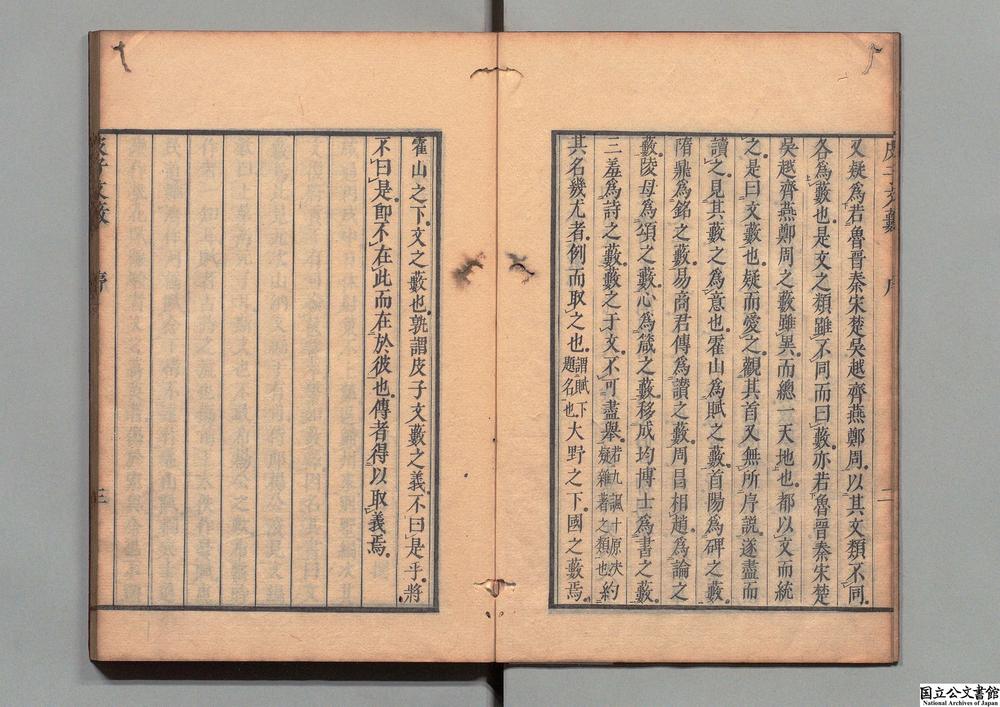 又疑爲若魯晋秦宋楚吳越齊燕鄭周以其文類不同
各爲藪也是文之類雖不同而曰藪亦若魯晋秦宋楚
吳越齊燕鄭周之藪雖異而總一天地也都以文而統
之是曰文藪也疑而愛之觀其首又無所序説遂盡而
讀之見其藪之爲意也霍山爲賦之藪首陽爲碑之藪
隋鼎爲銘之藪易商君傳爲讃之藪周昌相趙爲論之
藪陵母爲頌之藪心爲箴之藪移成均博士爲書之藪
三羞爲詩之藪藪之于文不可盡舉若九諷十原决疑雜著之類也約
其名幾尤者例而取之也謂賦下題名也大野之下國之藪焉
霍山之下文之藪也孰謂皮子文藪之義不曰是乎將
不曰是卽不在此而在於彼也傳者得以取義焉
皮子文藪
序
二
皮子文藪
序
三
国立公文書館
National Archives of Japan